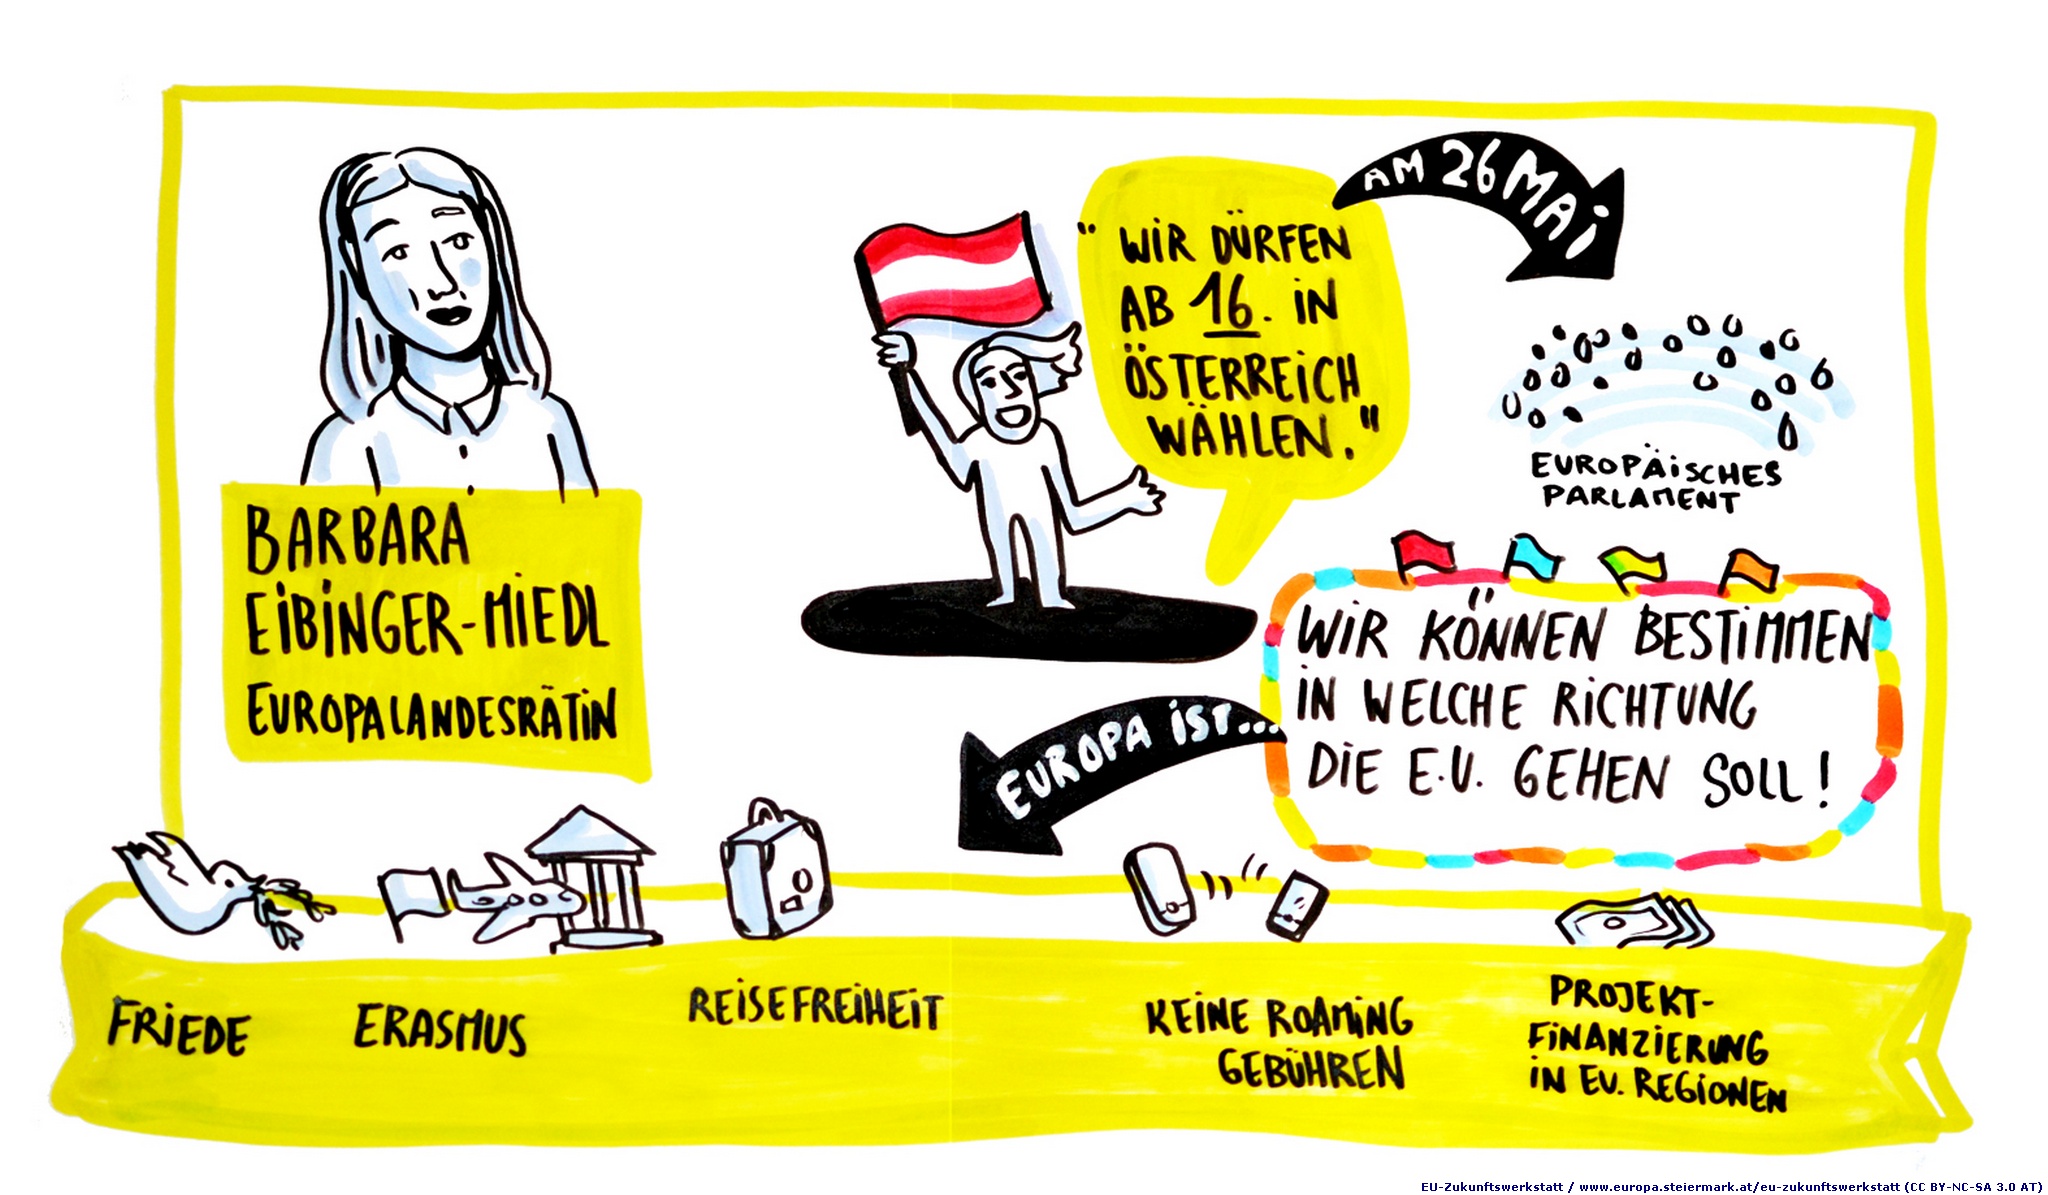 BARBARA
EIBINGER-MIEDL
EUROPALANDESRÄTIN
" WIR DÜRFEN
AB 16. IN
ÖSTERREICH
WÄHLEN."
AM 26 MAI
EUROPÄISCHES
PARLAMENT
WIR KÖNNEN BESTIMMEN
IN WELCHE RICHTUNG
DIE E.U. GEHEN SOLL!
EUROPA IST...
FRIEDE
ERASMUS
REISEFREIHEIT
KEINE ROAMING
GEBÜHREN
PROJEKT-
FINANZIERUNG
IN EU. REGIONEN
EU-Zukunftswerkstatt / www.europa.steiermark.at/eu-zukunftswerkstatt (CC BY-NC-SA 3.0 AT)